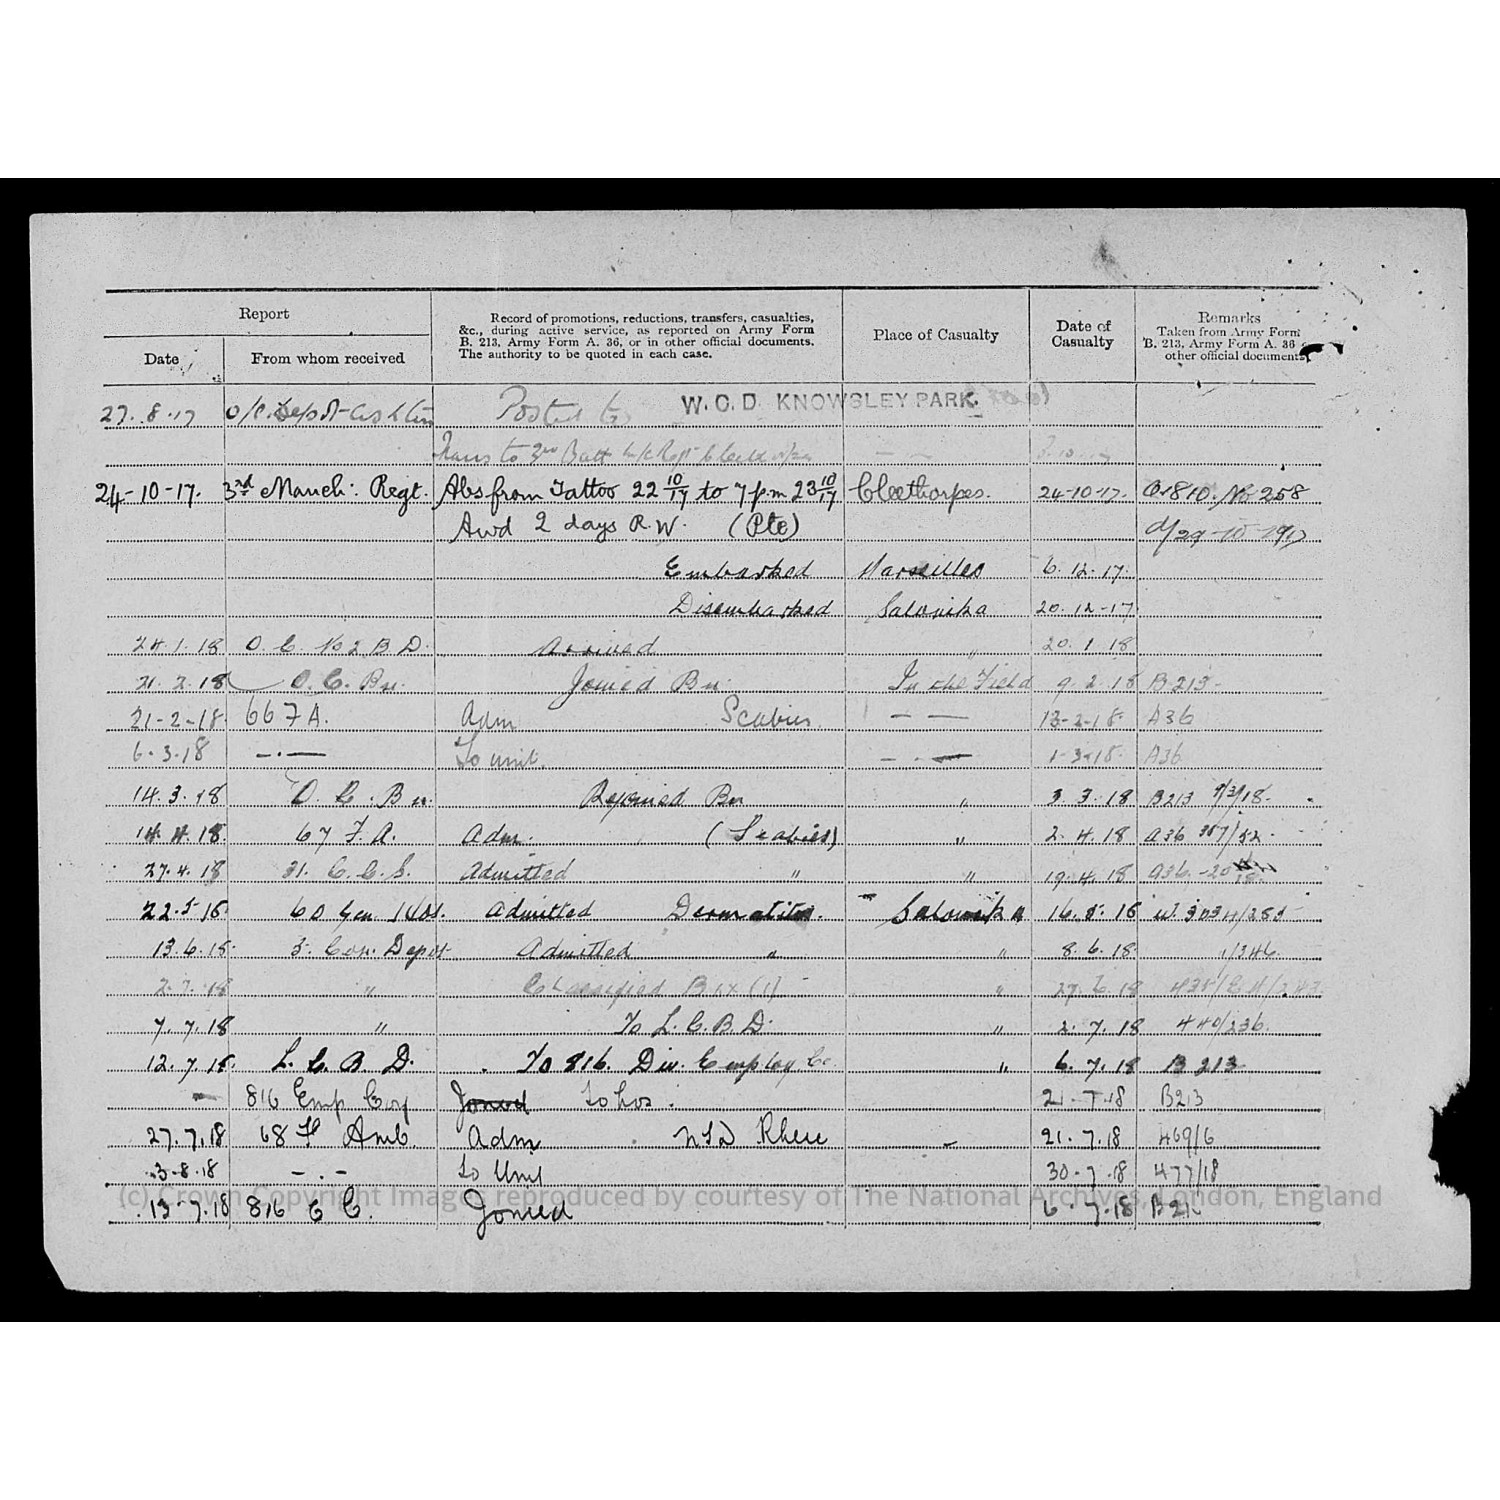 Report
Record of promotions, reductions, transfers, casualties,
&c., during active service, as reported on Army Form
B. 213, Army Form A. 36, or in other official documents.
The authority to be quoted in each case.
Place of Casualty
Date of
Casualty
Remarks
Taken from Army Form
B. 213, Army Form A. 36
other official documents
Date
From whom received
27.8.17 O/C. Depot Ashton Posted to W.C.D KNOWSLEY PARK.
Trans to 3rd Batt
24-10-17. 3rd Manch: Regt. Abs from Tattoo 22 10/17 to 7 p.m 23 10/17 Cleethorpes. 24-10-17. O.1810. No 258
Awd 2 days R.W. (Pte) d/29-10-1917
Embarked Marseilles 6.12.17.
Disembarked Salonika 20.12-17
24.1.18 O.C. No 2 B D. Arrived " 20.1.18
21.2.18 O.C. Bn. Joined Bn. In the Field 9.2.18 B213-
21-2-18 66 F A. Adm Scabies — — 13-2-18. A36
6.3.18 —·— To unit. — · — 1-3-18. A36
14.3.18 O.C. Bn. Rejoined Bn " 3.3.18 B213 9/3/18.
14.4.18. 67 F.A. Adm. (Scabies) " 2.4.18 A36 357/52.
27.4.18 31. C.C.S. Admitted " " 19.4.18 A36.
22.5.18 60 Gen Hos. Admitted Dermatitis. Salonika 16.5.18 W.3034/253
13.6.18. 5. Con. Depot Admitted " " 8.6.18. "/346
2.7.18 " Classified B (1) " 27.6.18
7.7.18 " To L.C.B.D. " 2.7.18 440/236
12.7.18. L.C.B.D. To 816. Div. Employ Co. " 6.7.18 B 213
— 816 Emp Coy Joined To hos. 21-7-18 B213
27.7.18 68 F Amb. Adm NYD Rheu — 21.7.18 469/6
3-8-18 — . — To Unit 30-7-18 477/18
13-7.18 816 E C. Joined 6-7-18 B21
(c) Crown Copyright Image reproduced by courtesy of The National Archives, London, England